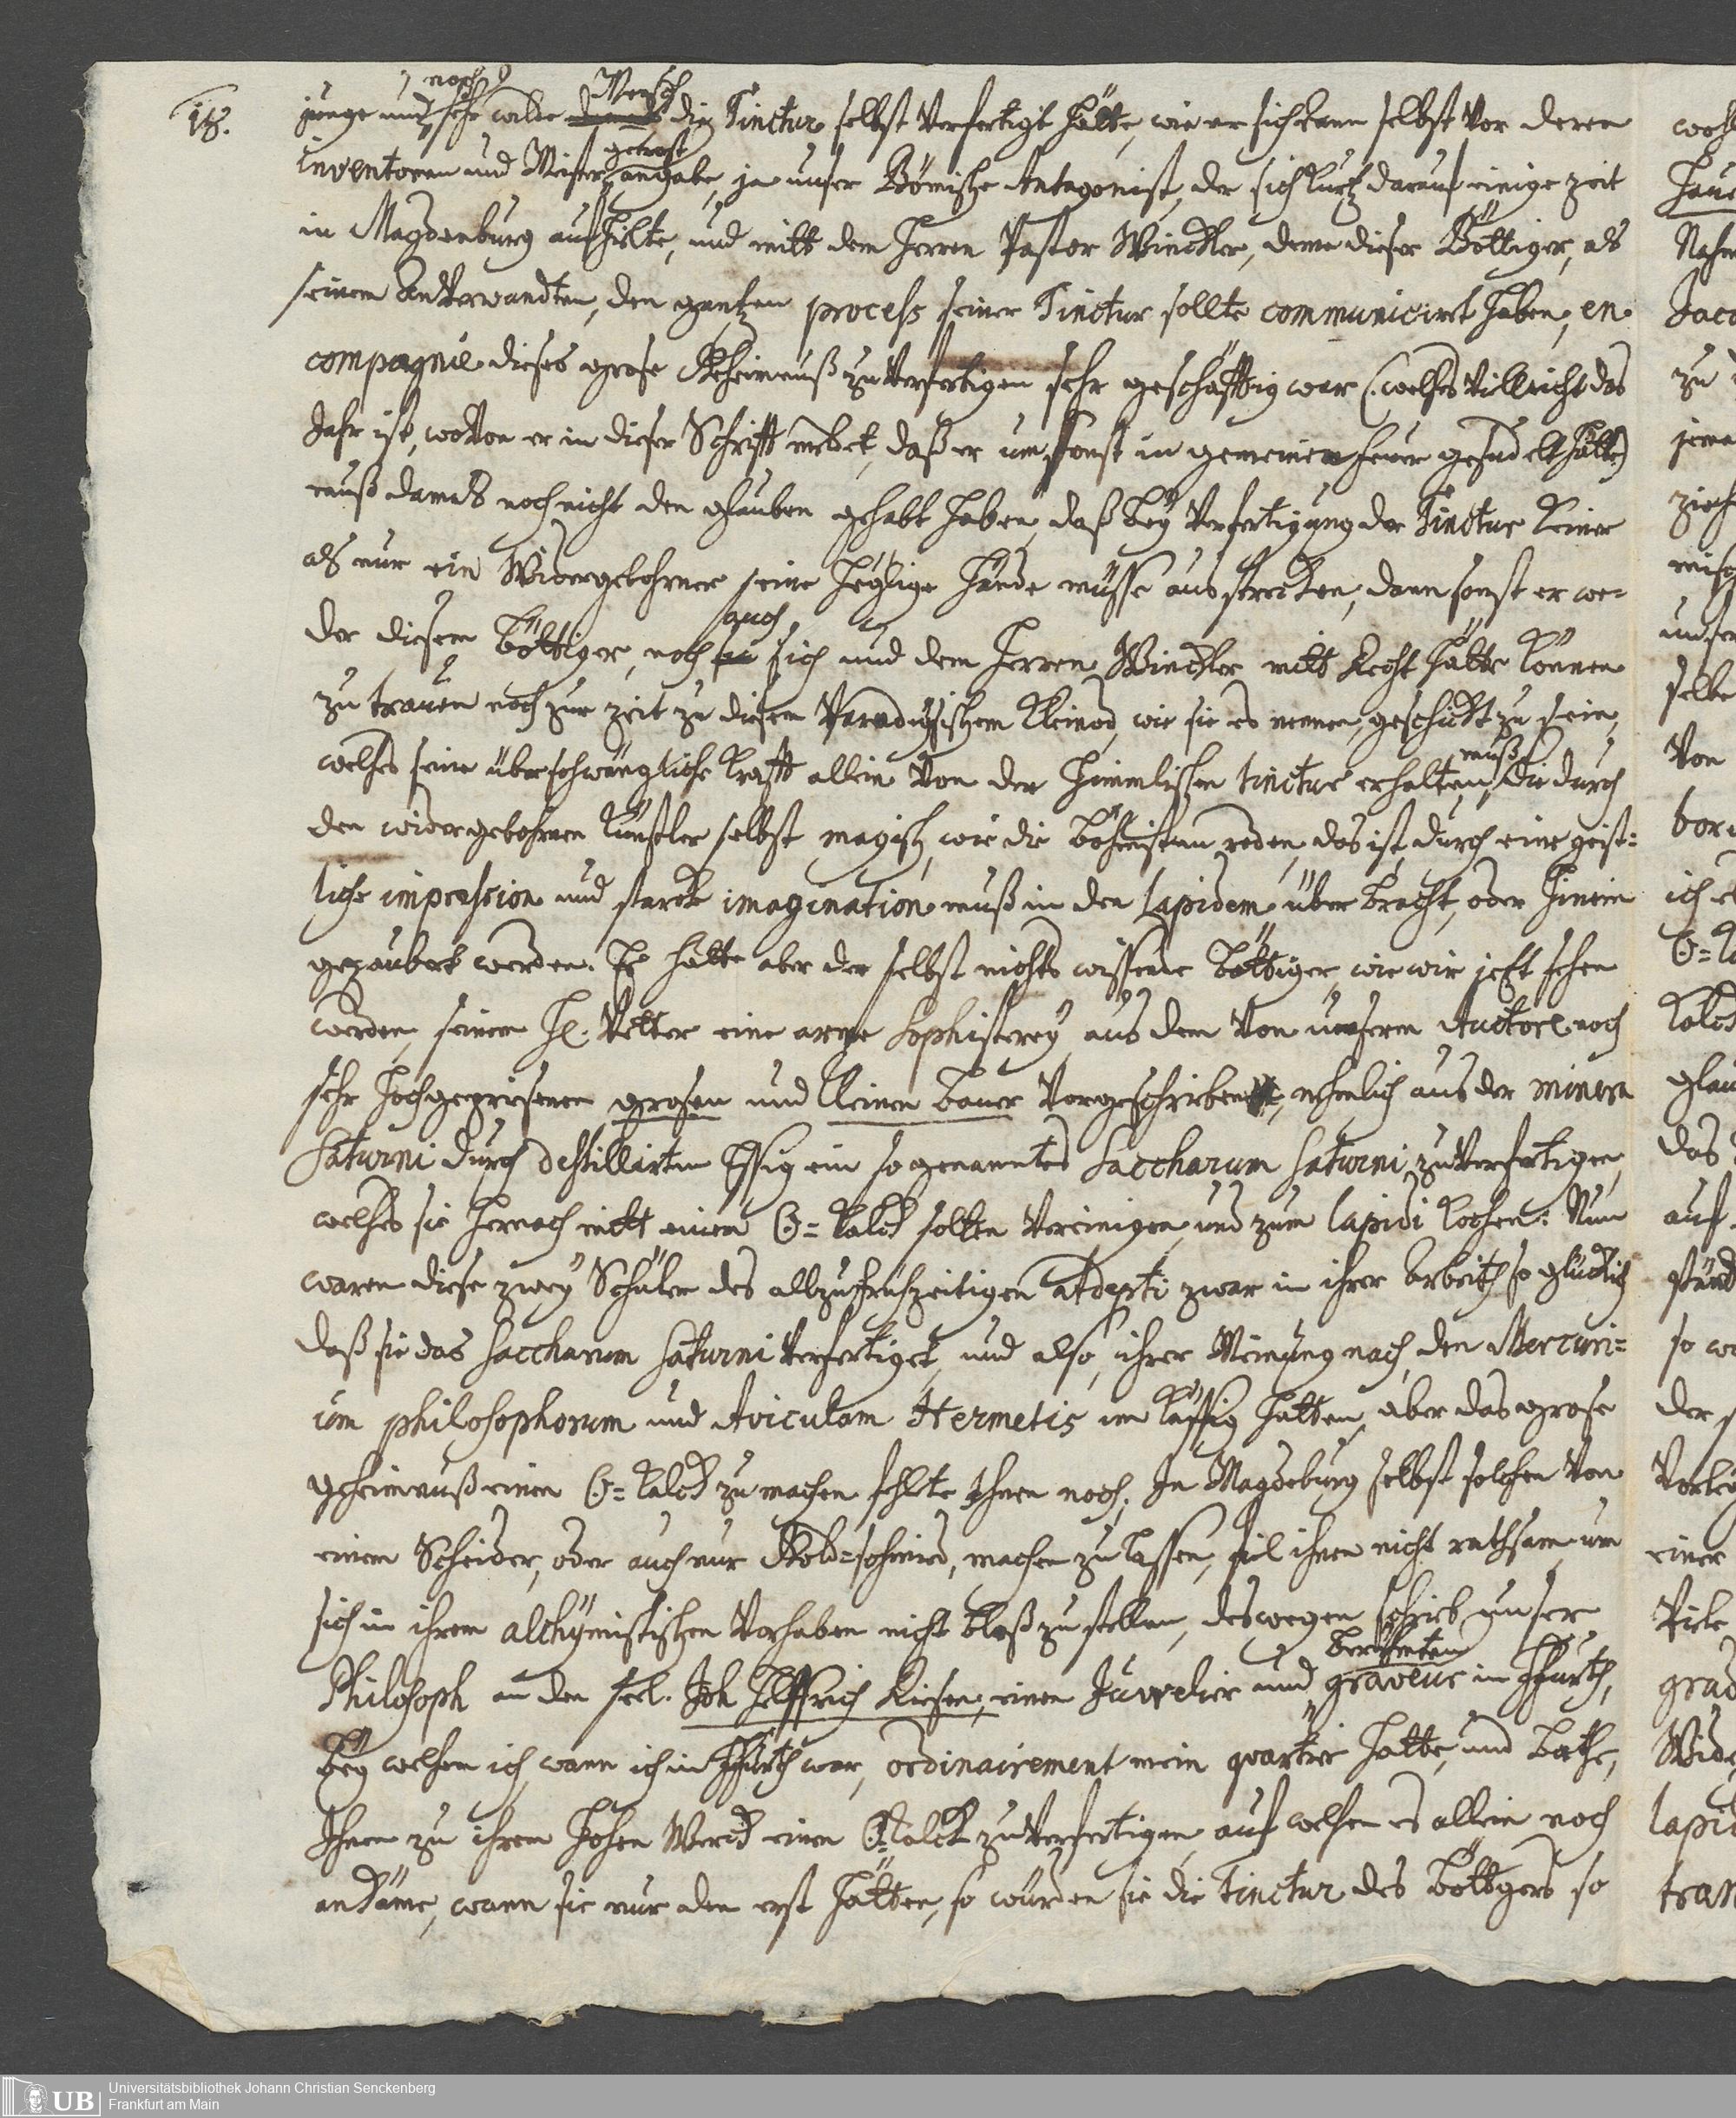 18.
junge und noch sehr wilde Mensch die Tinctur selbst verfertigt hätte, wie er sich kann selbst vor deren
inventoren und Meister getrost angabe, ja unser Bömische Antagonist, der sich kurtz darauf einige zeit
in Magdenburg aufhielte, und mitt dem Herren Pastor Winckler, deme dieser Böttiger, als
seinem anverwandten, den gantzen process seiner Tinctur sollte communiciret haben, en
compagnie dieses grose Geheimnuß zu verfertigen sehr geschäfftig war (welches villeicht das
Jahr ist, wovon er in dieser Schrifft meldet, daß er umsonst in gemeinem feuer gesudelt hätte)
muß damals noch nicht den glauben gehabt haben, daß bey verfertigung der Tinctur keiner
als nur ein Widergebohrner seine heylige hände müsse ausstrecken, dann sonst er we-
der diesem Böttiger, noch auch sich und dem Herren Winckler mitt Recht hätte können
zu trauen noch zur zeit zu diesem Paradysischem Kleinod, wie sie es nennen, geschickt zu sein,
welches seine überschwängliche krafft allein von der himmlischen tinctur erhalten muß, die durch
den widergebohrnen künstler selbst magisch, wie die Böhmisten reden, das ist, durch eine geist-
liche impression und starcke imagination muß in den Lapidem überbracht, oder hinein
gezaubert werden. Es hatte aber der selbst nichts wissende Böttiger, wie wir jetzt sehen
werden, seinem H. Vetter eine arme Sophisterey aus dem von unserem Auctore noch
sehr hochgepriesenen grosen und kleinen Bauer vorgeschrieben, nehmlich aus der minera
Saturni durch destillirten Essig ein so genanntes Saccharum Saturni zu verfertigen,
welches sie hernach mitt einem ☉=kalck sollten vereinigen und zum lapidi kochen: Nun
waren diese zwey Schüler des allzufrühzeitigen Adepti zwar in ihrer Arbeith so glücklich
daß sie das Saccharum Saturni verfertiget, und also, ihrer Meinung nach, den Mercuri-
um philosophorum und Aviculam Hermetis im käffig hatten, aber das grose
geheimnuß einen ☉=kalck zu machen fehlte Ihnen noch. In Magdeburg selbst solchen von
einem Scheider, oder auch nur Gold=schmied, machen zu lassen, fiel ihnen nicht rathsam, um
sich in ihrem alchymistischen Vorhaben nicht bloß zu stellen, deswegen schrieb unser
Philosoph an den seel. Joh Helffrich Riesen, einen Juvelier und berühmten graveur in Ffurth,
bey welchem ich, wann ich in Ffurth war, ordinairement mein quartier hatte, und bathe,
Ihnen zu ihrem hohen Werck einen ☉=kalck zu verfertigen, auf welchen es allein noch
ankäme, wann sie nur den erst hätten, so würden sie die Tinctur des Böttgers so
Universitätsbibliothek Johann Christian Senckenberg
Frankfurt am Main
UB